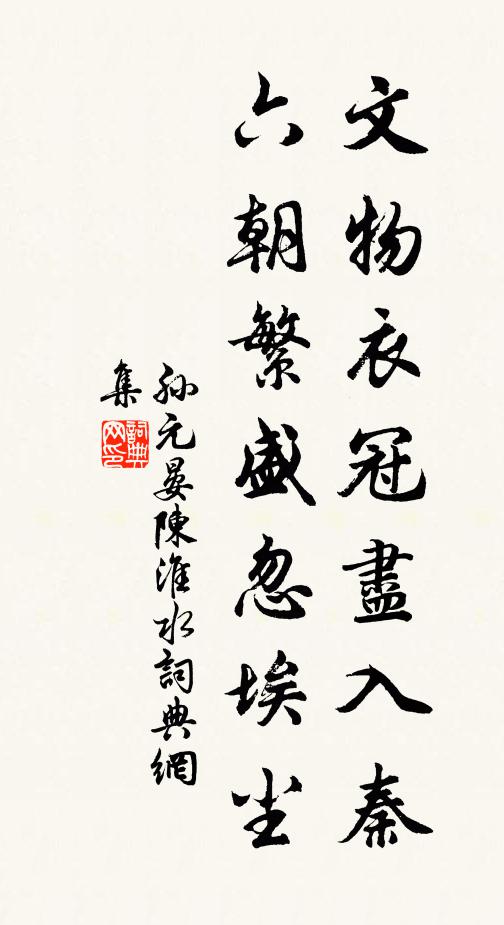 文物衣冠盡入秦
六朝繁盛忽埃尘
孫元晏陳淮水詞典網
集
詞典
网印